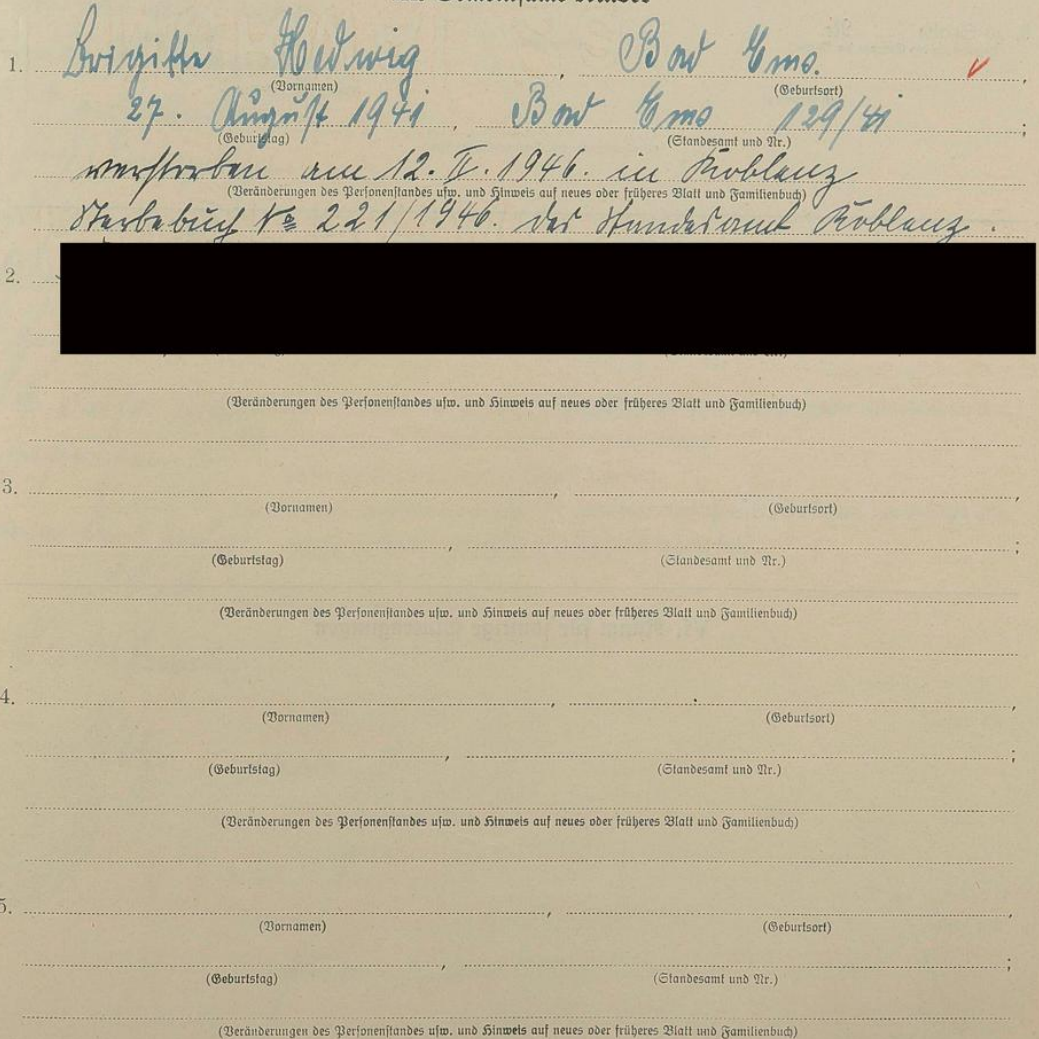 1. Brigitte Hedwig, Bad Ems.,
(Vornamen) (Geburtsort)
27. August 1941, Bad Ems 129/41;
(Geburtstag) (Standesamt und Nr.)
verstorben am 12. II. 1946. in Koblenz
(Veränderungen des Personenstandes usw. und Hinweis auf neues oder früheres Blatt und Familienbuch)
Sterbebuch No 221/1946. des Standesamt Koblenz.
2.
(Veränderungen des Personenstandes usw. und Hinweis auf neues oder früheres Blatt und Familienbuch)
3. , ,
(Vornamen) (Geburtsort)
, ;
(Geburtstag) (Standesamt und Nr.)
(Veränderungen des Personenstandes usw. und Hinweis auf neues oder früheres Blatt und Familienbuch)
4. , ,
(Vornamen) (Geburtsort)
, ;
(Geburtstag) (Standesamt und Nr.)
(Veränderungen des Personenstandes usw. und Hinweis auf neues oder früheres Blatt und Familienbuch)
5. , ,
(Vornamen) (Geburtsort)
, ;
(Geburtstag) (Standesamt und Nr.)
(Veränderungen des Personenstandes usw. und Hinweis auf neues oder früheres Blatt und Familienbuch)